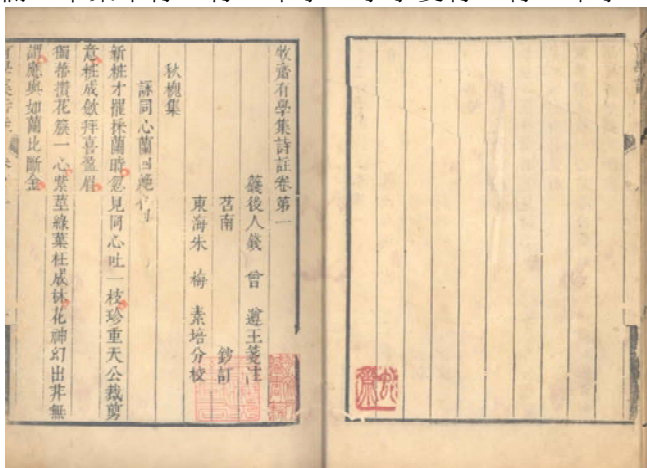 牧齋有學集詩註卷第一
籛後人錢 曾 遵王箋注
苕南 鈔訂
東海朱 梅 素培分校
秋槐集
詠同心蘭四絕句
新粧才罷採蘭時忽見同心吐一枝珍重天公裁剪
意粧成斂拜喜盈眉
獨蒂攢花簇一心紫莖綠葉枉成林花神幻出非無
謂應與如蘭比斷金